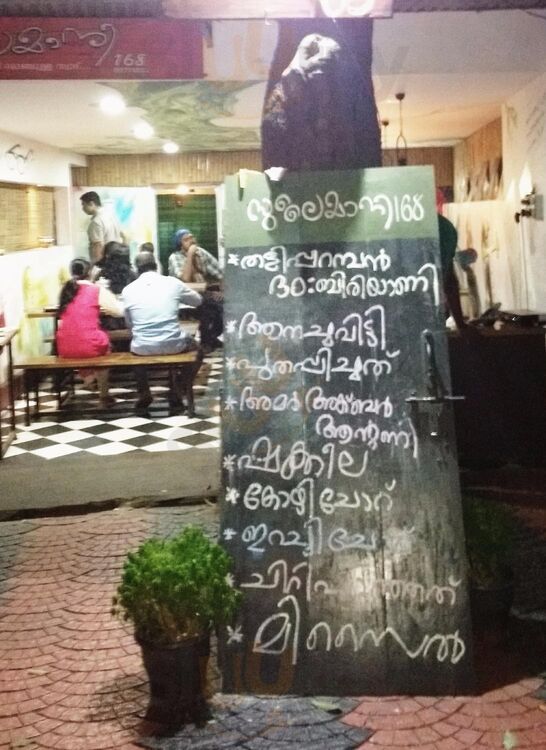 168
സുലൈമാനി 168
*തളിപ്പറമ്പൻ
ദം:ബിരിയാണി
*ആനചുവിട്ടി
*പുതപ്പിച്ചത്
*അമർ അക്ബർ
ആന്റണി
*ഷക്കീല
*കോഴിചോറ്
*ഇറച്ചിചോറ്
*മിസൈൽ